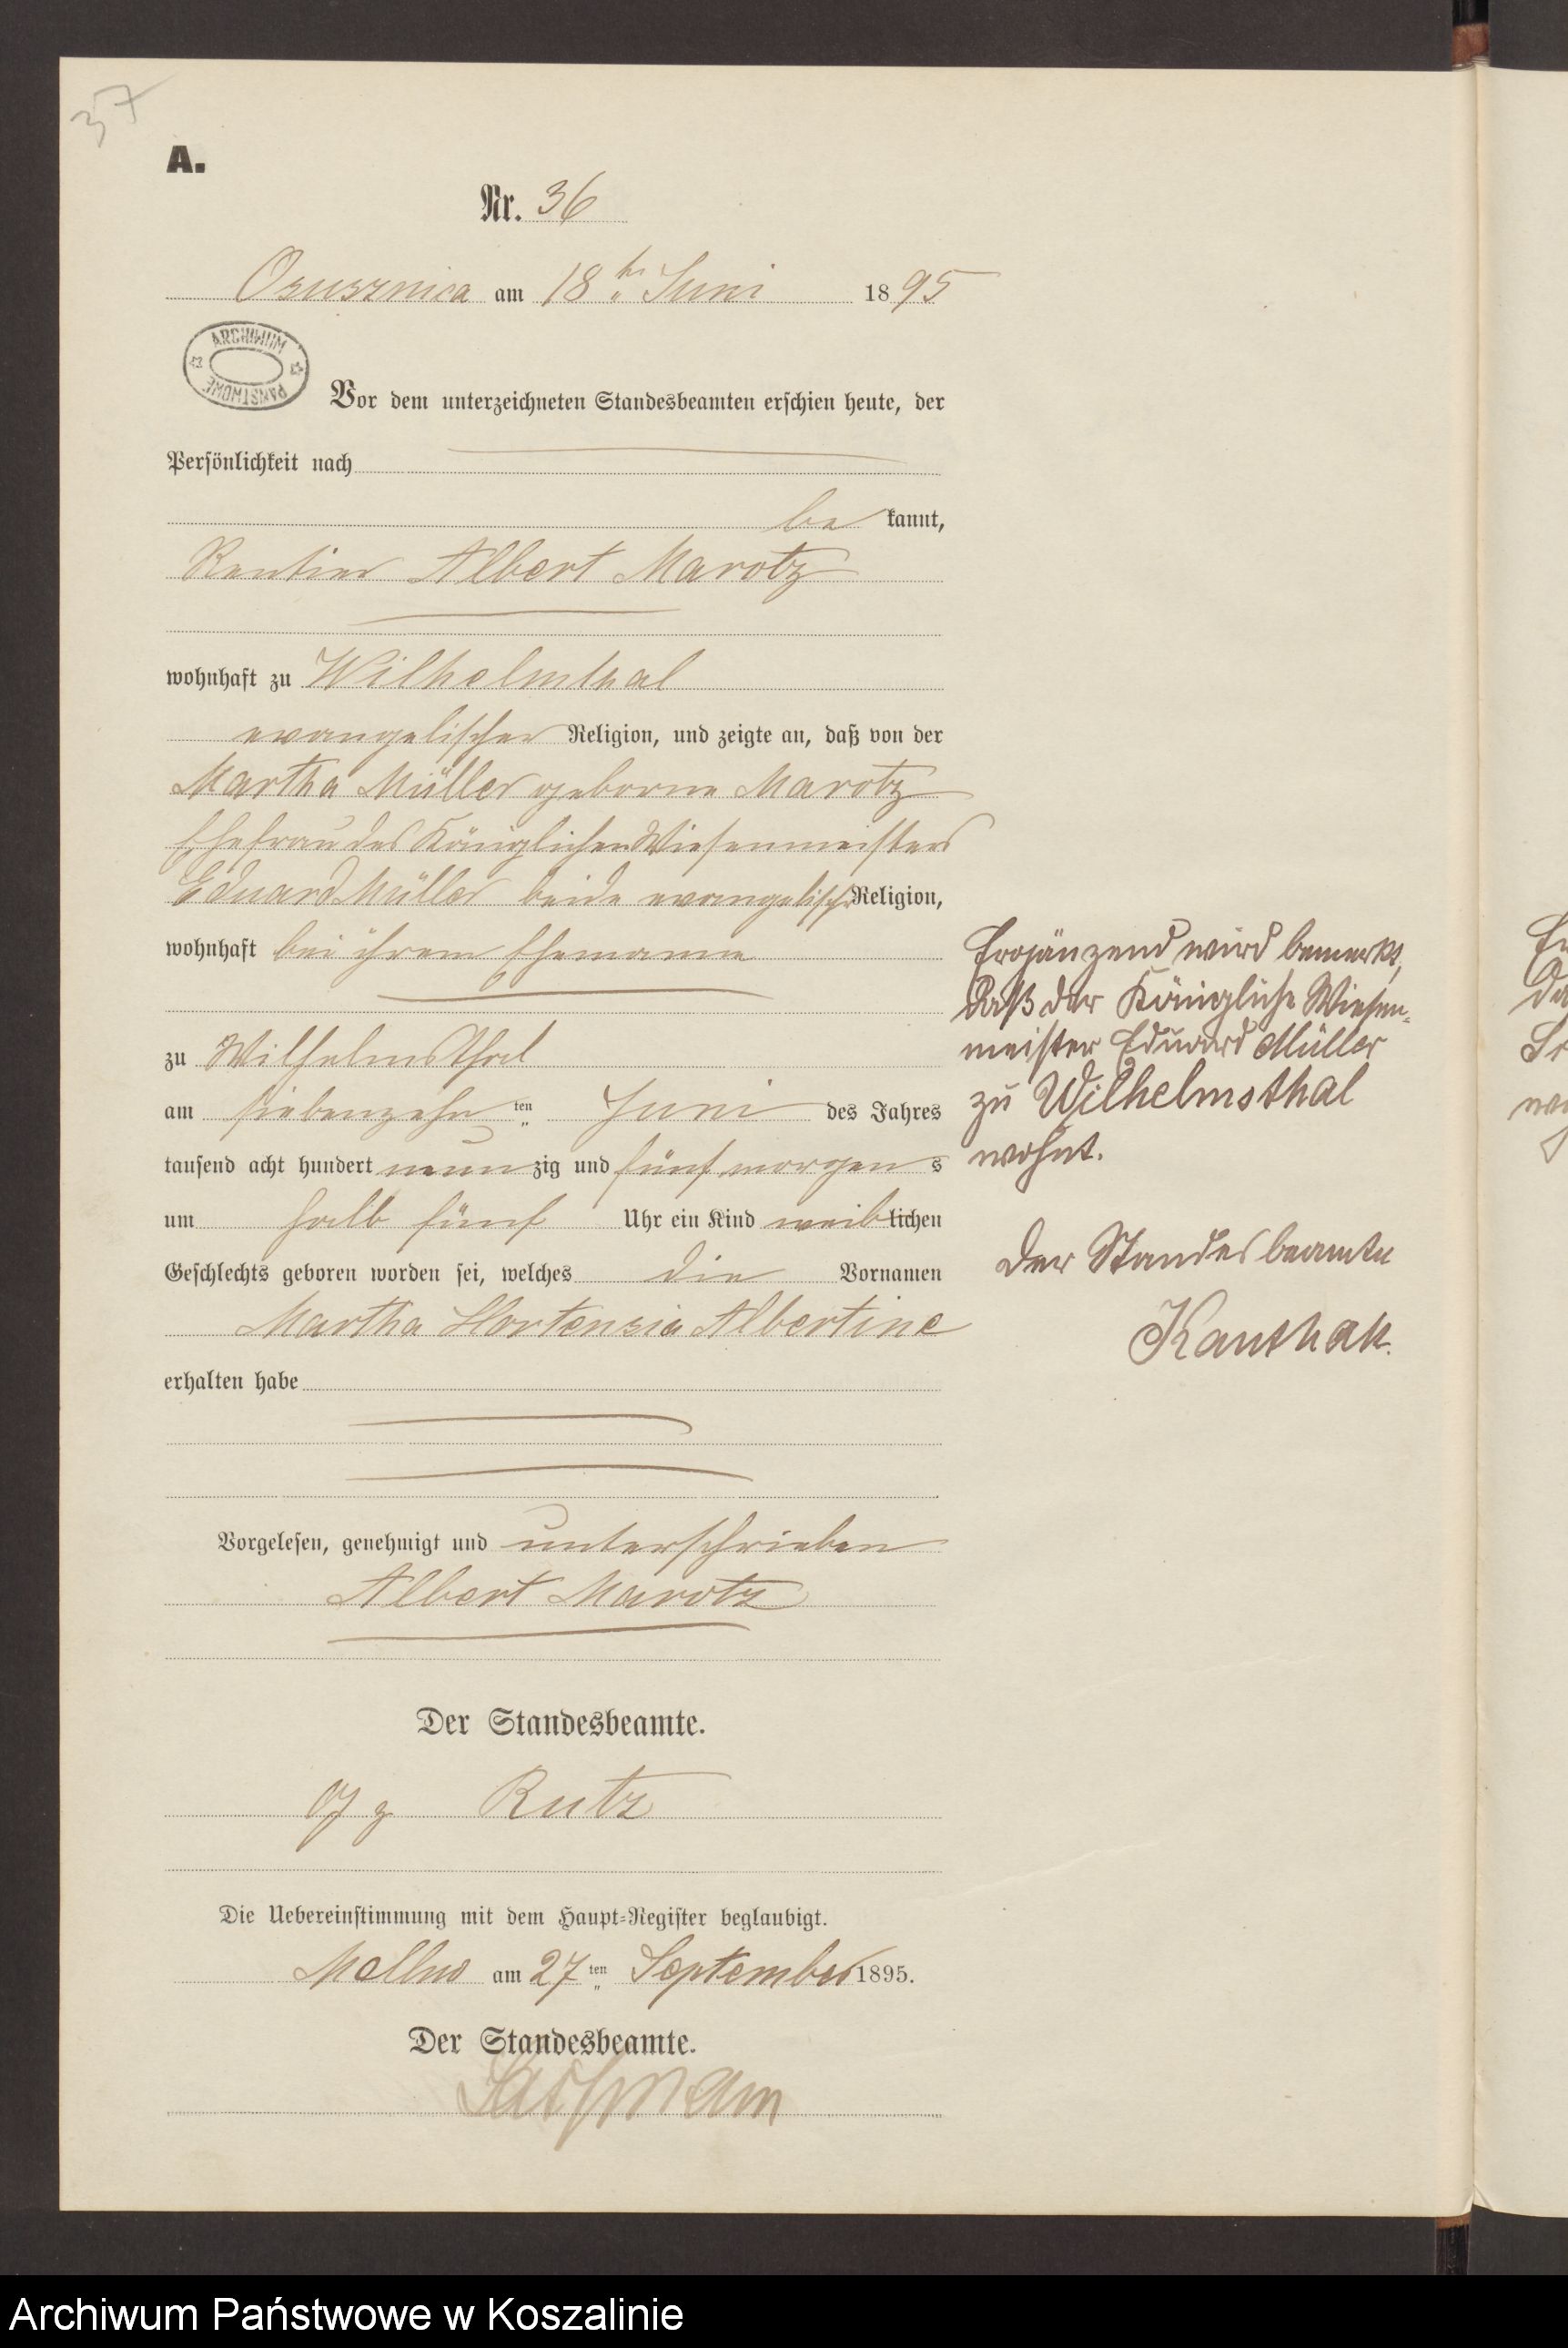 37
A.
Nr. 36
Osusznica am 18ten Juni 1895
ARCHIWUM PAŃSTWOWE
Vor dem unterzeichneten Standesbeamten erschien heute, der
Persönlichkeit nach
be kannt,
Rentier Albert Marotz
wohnhaft zu Wilhelmthal
evangelischer Religion, und zeigte an, daß von der
Martha Müller geborne Marotz
Ehefrau des Königlichen Wiesenmeisters
Eduard Müller beide evangelischer Religion,
wohnhaft bei ihrem Ehemanne
zu Wilhelmsthal
am siebenzehn ten Juni des Jahres
tausend acht hundert neun zig und fünf morgen s
um halb fünf Uhr ein Kind weiblichen
Geschlechts geboren worden sei, welches die Vornamen
Martha Hortensia Albertine
erhalten habe
Vorgelesen, genehmigt und unterschrieben
Albert Marotz
Der Standesbeamte.
gz Rutz
Die Uebereinstimmung mit dem Haupt-Register beglaubigt.
am 27 ten September 1895.
Der Standesbeamte.
Ergänzend wird bemerkt,
daß der Königliche Wiesen-
meister Eduard Müller
zu Wilhelmsthal
wohnt.
Der Standesbeamte
Kanthak.
Archiwum Państwowe w Koszalinie